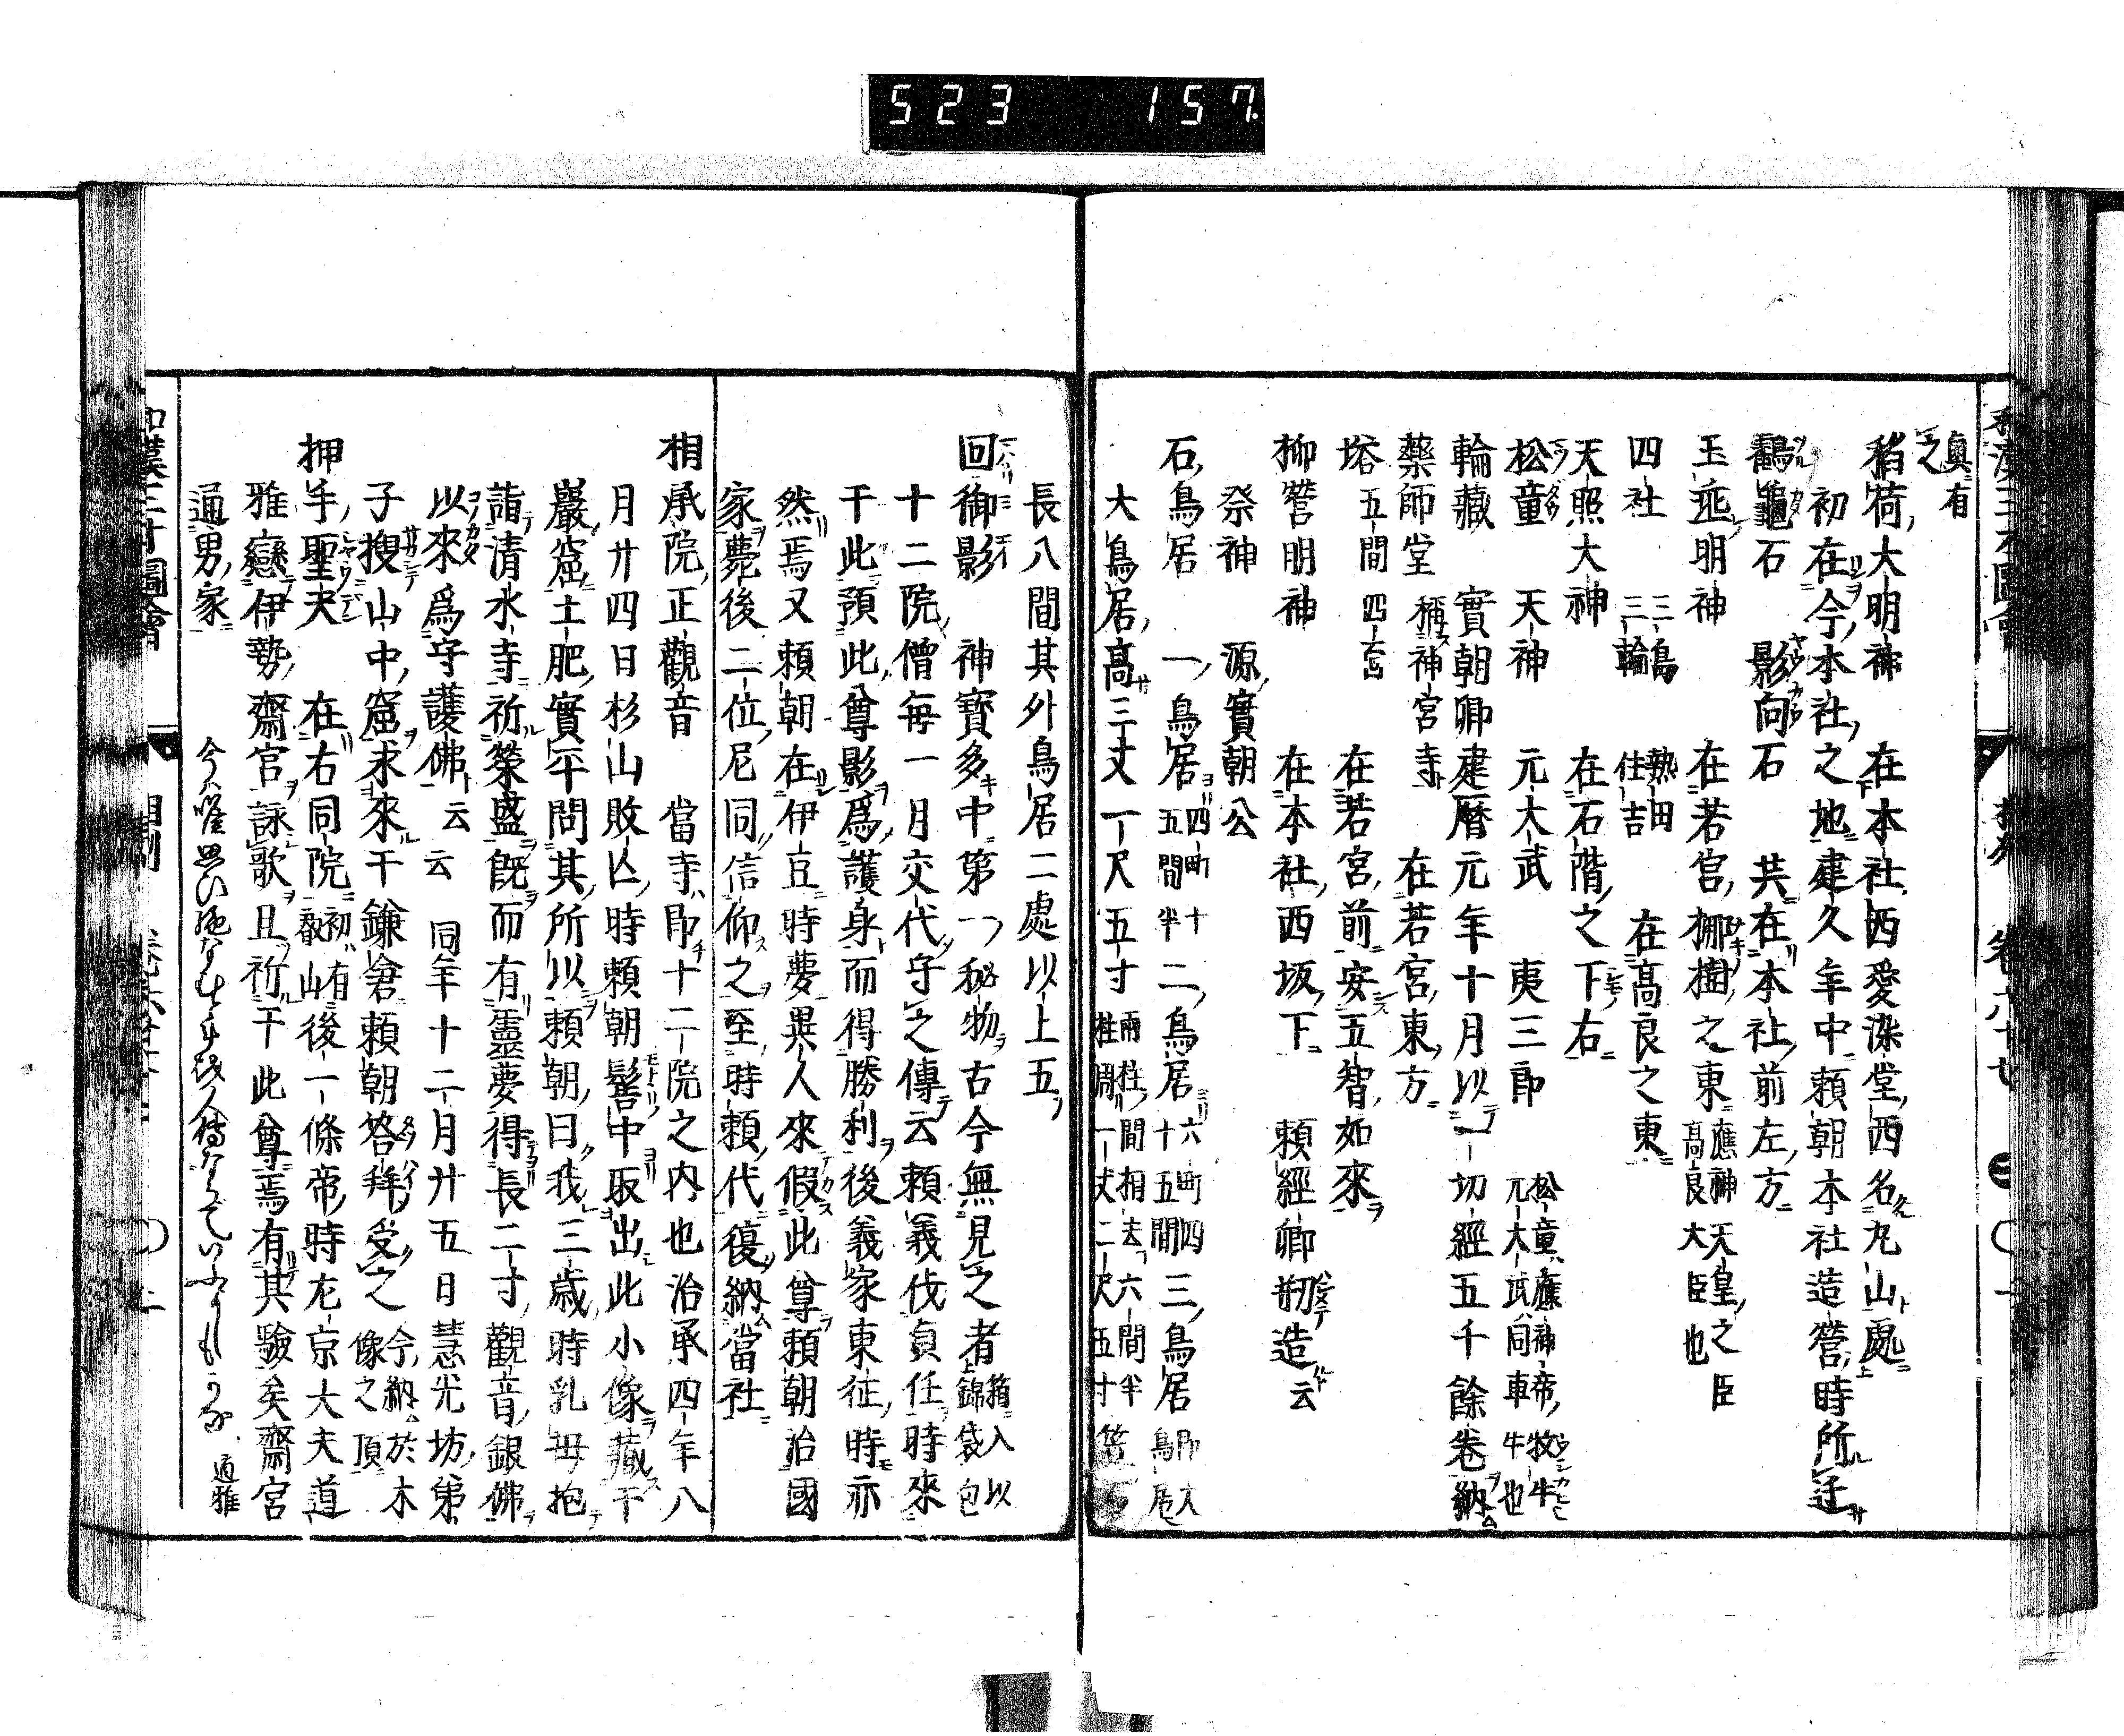 523 157
真有
之
稻荷大明神 在本社西愛染堂西名丸山處
初在今本社之地建久年中頼朝本社造營時所迁
鶴龜石 影向石 共在本社前左方
玉垂明神 在若宮棚樹之東 應神天皇之臣
髙良大臣也
四社 三島 熱田 在髙良之東
三輪 住吉
天照大神 在石階之下右
松童 天神 元大武 夷三郎 松童應神帝牧牛
元大武同車牛也
輪藏 實朝卿建暦元年十月以一切經五千餘卷納
藥師堂 稱神宮寺 在若宮東方
塔 五間四面 在若宮前安五智如來
柳營明神 在本社西坂下 頼經卿剏造云
祭神 源實朝公
石鳥居 一鳥居 四町十 二鳥居 六町四 三鳥居 即大
五間半 十五間 鳥居
大鳥居髙三丈一尺五寸 兩柱間相去六間半
柱周一丈二尺五寸
長八間其外鳥居二處以上五
回御影 神寶多中第一秘物古今無見之者 箱入以
上錦袋包
十二院僧毎一月交代守之傳云頼義伐貞任時來
干此預此尊影爲護身而得勝利後義家東征時亦
然焉又頼朝在伊豆時夢異人來假此尊頼朝治國
家薨後二位尼同信仰之至時頼代復納當社
相承院正觀音 當寺即十二院之内也治承四年八
月廿四日杉山敗亡時頼朝髻中取出此小像藏干
巖窟土肥實平問其所以頼朝曰我三歳時乳母抱
詣清水寺祈榮盛既而有靈夢得長二寸觀音銀佛
以來爲守護佛云云 同年十二月廿五日慧光坊弟
子搜山中窟求來干鎌倉頼朝答拜受之 今納於木
像之頂
押手聖天 在右同院 初有叡山 後一條帝時左京大夫道
雅戀伊勢齋宮詠歌且祈干此尊焉有其驗矣齋宮
通男家
今ハ唯思ひ絶なむとはかり人傳ならていふよしもかな 道雅